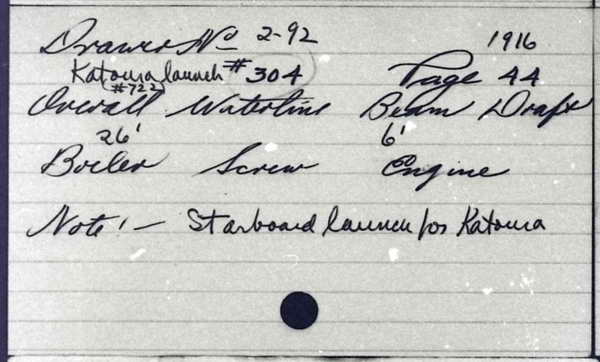 Drawer No 2-92 1916
Katoura launch #304 Page 44
(#722)
Overall Waterline Beam Draft
26' 6'
Boiler Screw Engine
Note! - Starboard launch for Katoura